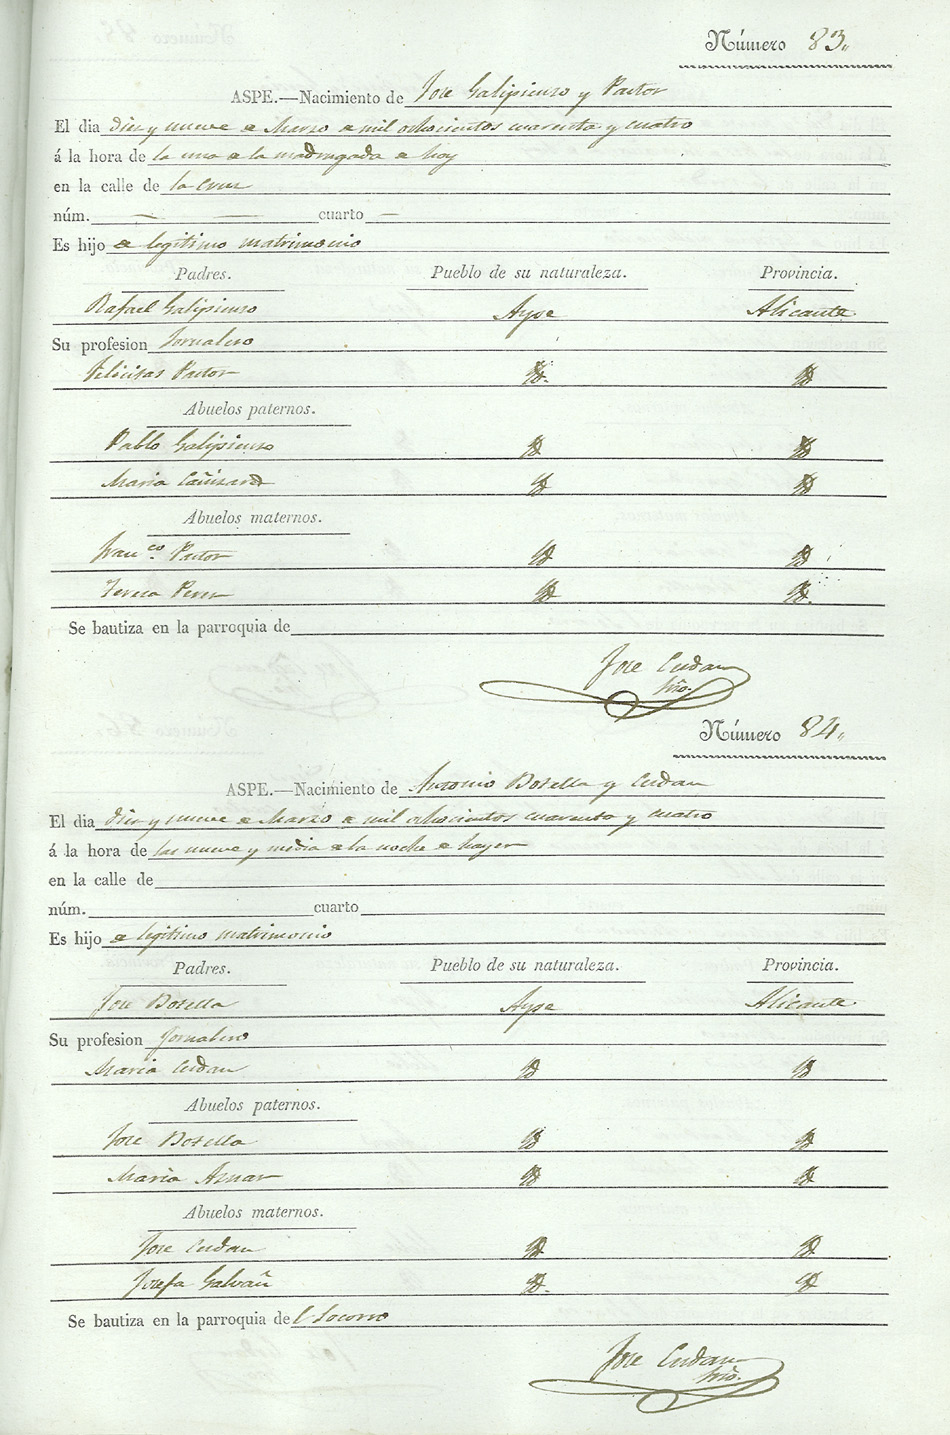 Número 83.
ASPE.—Nacimiento de Jose Galipienso y Pastor
El dia diez y nueve de Marzo de mil ochocientos cuarenta y cuatro
á la hora de la una de la madrugada de hoy
en la calle de la Cruz
núm. — — cuarto —
Es hijo de legitimo matrimonio
Padres. Pueblo de su naturaleza. Provincia.
Rafael Galipienso Aspe Alicante
Su profesion Jornalero
Felicitas Pastor Yd. Yd
Abuelos paternos.
Pablo Galipienso Yd Yd
Maria Cañizares Yd Yd
Abuelos maternos.
Franco. Pastor Yd Yd
Teresa Perez Yd Yd.
Se bautiza en la parroquia de
Jose Cerdan
Srio.
Número 84.
ASPE.—Nacimiento de Antonio Botella y Cerdan
El dia diez y nueve de Marzo de mil ochocientos cuarenta y cuatro
á la hora de las nueve y media de la noche de hayer
en la calle de
núm. cuarto
Es hijo de legitimo matrimonio
Padres. Pueblo de su naturaleza. Provincia.
Jose Botella Aspe Alicante
Su profesion Jornalero
Maria Cerdan Yd Yd
Abuelos paternos.
Jose Botella Yd Yd
Maria Aznar Yd Yd
Abuelos maternos.
Jose Cerdan Yd Yd
Josefa Galvañ Yd. Yd
Se bautiza en la parroquia del Socorro
Jose Cerdan
Srio.